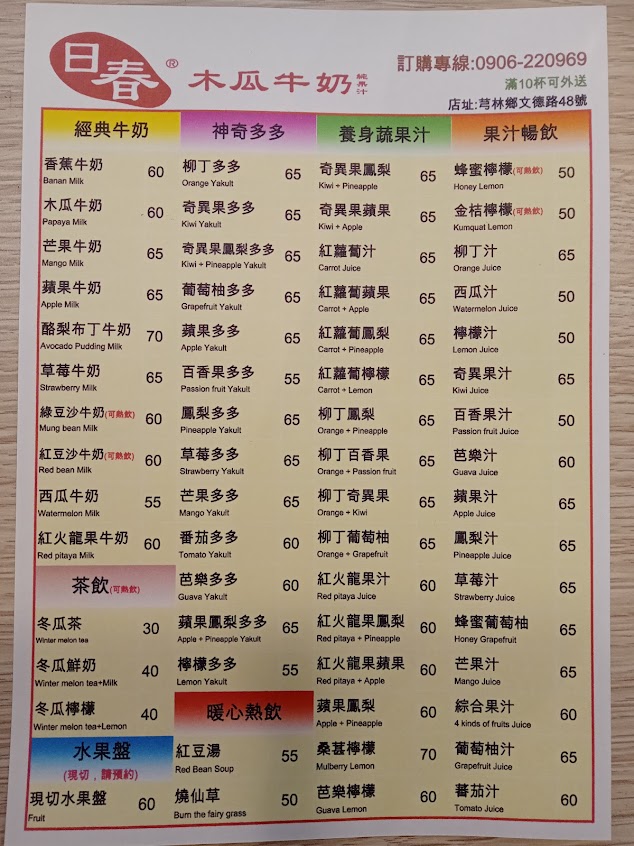 日春®
木瓜牛奶 純果汁
訂購專線:0906-220969
滿10杯可外送
店址:芎林鄉文德路48號
經典牛奶
香蕉牛奶 60
Banan Milk
木瓜牛奶 60
Papaya Milk
芒果牛奶 65
Mango Milk
蘋果牛奶 65
Apple Milk
酪梨布丁牛奶 70
Avocado Pudding Milk
草莓牛奶 65
Strawberry Milk
綠豆沙牛奶(可熱飲) 60
Mung bean Milk
紅豆沙牛奶(可熱飲) 60
Red bean Milk
西瓜牛奶 55
Watermelon Milk
紅火龍果牛奶 60
Red pitaya Milk
茶飲(可熱飲)
冬瓜茶 30
Winter melon tea
冬瓜鮮奶 40
Winter melon tea+Milk
冬瓜檸檬 40
Winter melon tea+Lemon
水果盤
(現切，請預約)
現切水果盤 60
Fruit
神奇多多
柳丁多多 65
Orange Yakult
奇異果多多 65
Kiwi Yakult
奇異果鳳梨多多 65
Kiwi + Pineapple Yakult
葡萄柚多多 65
Grapefruit Yakult
蘋果多多 65
Apple Yakult
百香果多多 55
Passion fruit Yakult
鳳梨多多 65
Pineapple Yakult
草莓多多 65
Strawberry Yakult
芒果多多 65
Mango Yakult
番茄多多 60
Tomato Yakult
芭樂多多 60
Guava Yakult
蘋果鳳梨多多 65
Apple + Pineapple Yakult
檸檬多多 55
Lemon Yakult
暖心熱飲
紅豆湯 55
Red Bean Soup
燒仙草 50
Burn the fairy grass
養身蔬果汁
奇異果鳳梨 65
Kiwi + Pineapple
奇異果蘋果 65
Kiwi + Apple
紅蘿蔔汁 65
Carrot Juice
紅蘿蔔蘋果 65
Carrot + Apple
紅蘿蔔鳳梨 65
Carrot + Pineapple
紅蘿蔔檸檬 65
Carrot + Lemon
柳丁鳳梨 65
Orange + Pineapple
柳丁百香果 65
Orange + Passion fruit
柳丁奇異果 65
Orange + Kiwi
柳丁葡萄柚 65
Orange + Grapefruit
紅火龍果汁 60
Red pitaya Juice
紅火龍果鳳梨 60
Red pitaya + Pineapple
紅火龍果蘋果 60
Red pitaya + Apple
蘋果鳳梨 60
Apple + Pineapple
桑葚檸檬 70
Mulberry Lemon
芭樂檸檬 60
Guava Lemon
果汁暢飲
蜂蜜檸檬(可熱飲) 50
Honey Lemon
金桔檸檬(可熱飲) 50
Kumquat Lemon
柳丁汁 65
Orange Juice
西瓜汁 50
Watermelon Juice
檸檬汁 50
Lemon Juice
奇異果汁 65
Kiwi Juice
百香果汁 50
Passion fruit Juice
芭樂汁 60
Guava Juice
蘋果汁 65
Apple Juice
鳳梨汁 65
Pineapple Juice
草莓汁 65
Strawberry Juice
蜂蜜葡萄柚 65
Honey Grapefruit
芒果汁 65
Mango Juice
綜合果汁 60
4 kinds of fruits Juice
葡萄柚汁 65
Grapefruit Juice
蕃茄汁 60
Tomato Juice